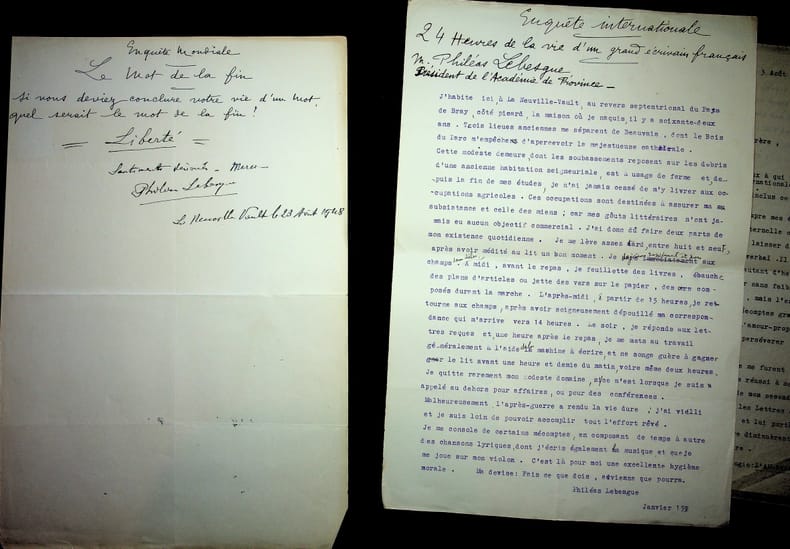 Enquête Mondiale
Le Mot de la fin
si vous deviez conclure votre vie d'un mot,
quel serait le mot de la fin ?
= Liberté =
Sentiments dévoués - Merci -
Philéas Lebesgue
La Neuville Vault le 23 Août 1948
Enquête internationale
24 Heures de la vie d'un grand écrivain français
M. Philéas Lebesgue
Président de l'Académie de Province -
J'habite ici à La Neuville-Vault, au revers septentrional du Pays
de Bray, côté picard, la maison où je naquis, il y a soixante-deux
ans. Trois lieues anciennes me séparent de Beauvais, dont le Bois
du Parc m'empêche d'apercevoir la majestueuse cathédrale.
Cette modeste demeure, dont les soubassements reposent sur les débris
d'une ancienne habitation seigneuriale, est à usage de ferme et, de-
puis la fin de mes études, je n'ai jamais cessé de m'y livrer aux oc-
cupations agricoles. Ces occupations sont destinées à assurer ma
subsistance et celle des miens ; car mes goûts littéraires n'ont ja-
mais eu aucun objectif commercial. J'ai donc dû faire deux parts de
mon existence quotidienne. Je me lève assez tard, entre huit et neuf,
après avoir médité au lit un bon moment. Je
aux
champs. A midi, avant le repas, je feuillette des livres, ébauche
des plans d'articles ou jette des vers sur le papier, des vers com-
posés durant la marche. L'après-midi, à partir de 15 heures, je ret-
tourne aux champs, après avoir soigneusement dépouillé ma correspon-
dance qui m'arrive vers 14 heures. Le soir, je réponds aux let-
tres reçues et une heure après le repas, je me mets au travail
généralement à l'aide de la machine à écrire, et ne songe guère à gagner
le lit avant une heure et demie du matin, voire même deux heures.
Je quitte rarement mon modeste domaine, si ce n'est lorsque je suis
appelé au dehors pour affaires, ou pour des conférences.
Malheureusement, l'après-guerre a rendu la vie dure ; j'ai vieilli
et je suis loin de pouvoir accomplir tout l'effort rêvé.
Je me console de certains mécomptes, en composant de temps à autre
des chansons lyriques, dont j'écris également la musique et que je
me joue sur mon violon. C'est là pour moi une excellente hygiène
morale. Ma devise: Fais ce que dois, advienne que pourra.
Philéas Lebesgue
Janvier